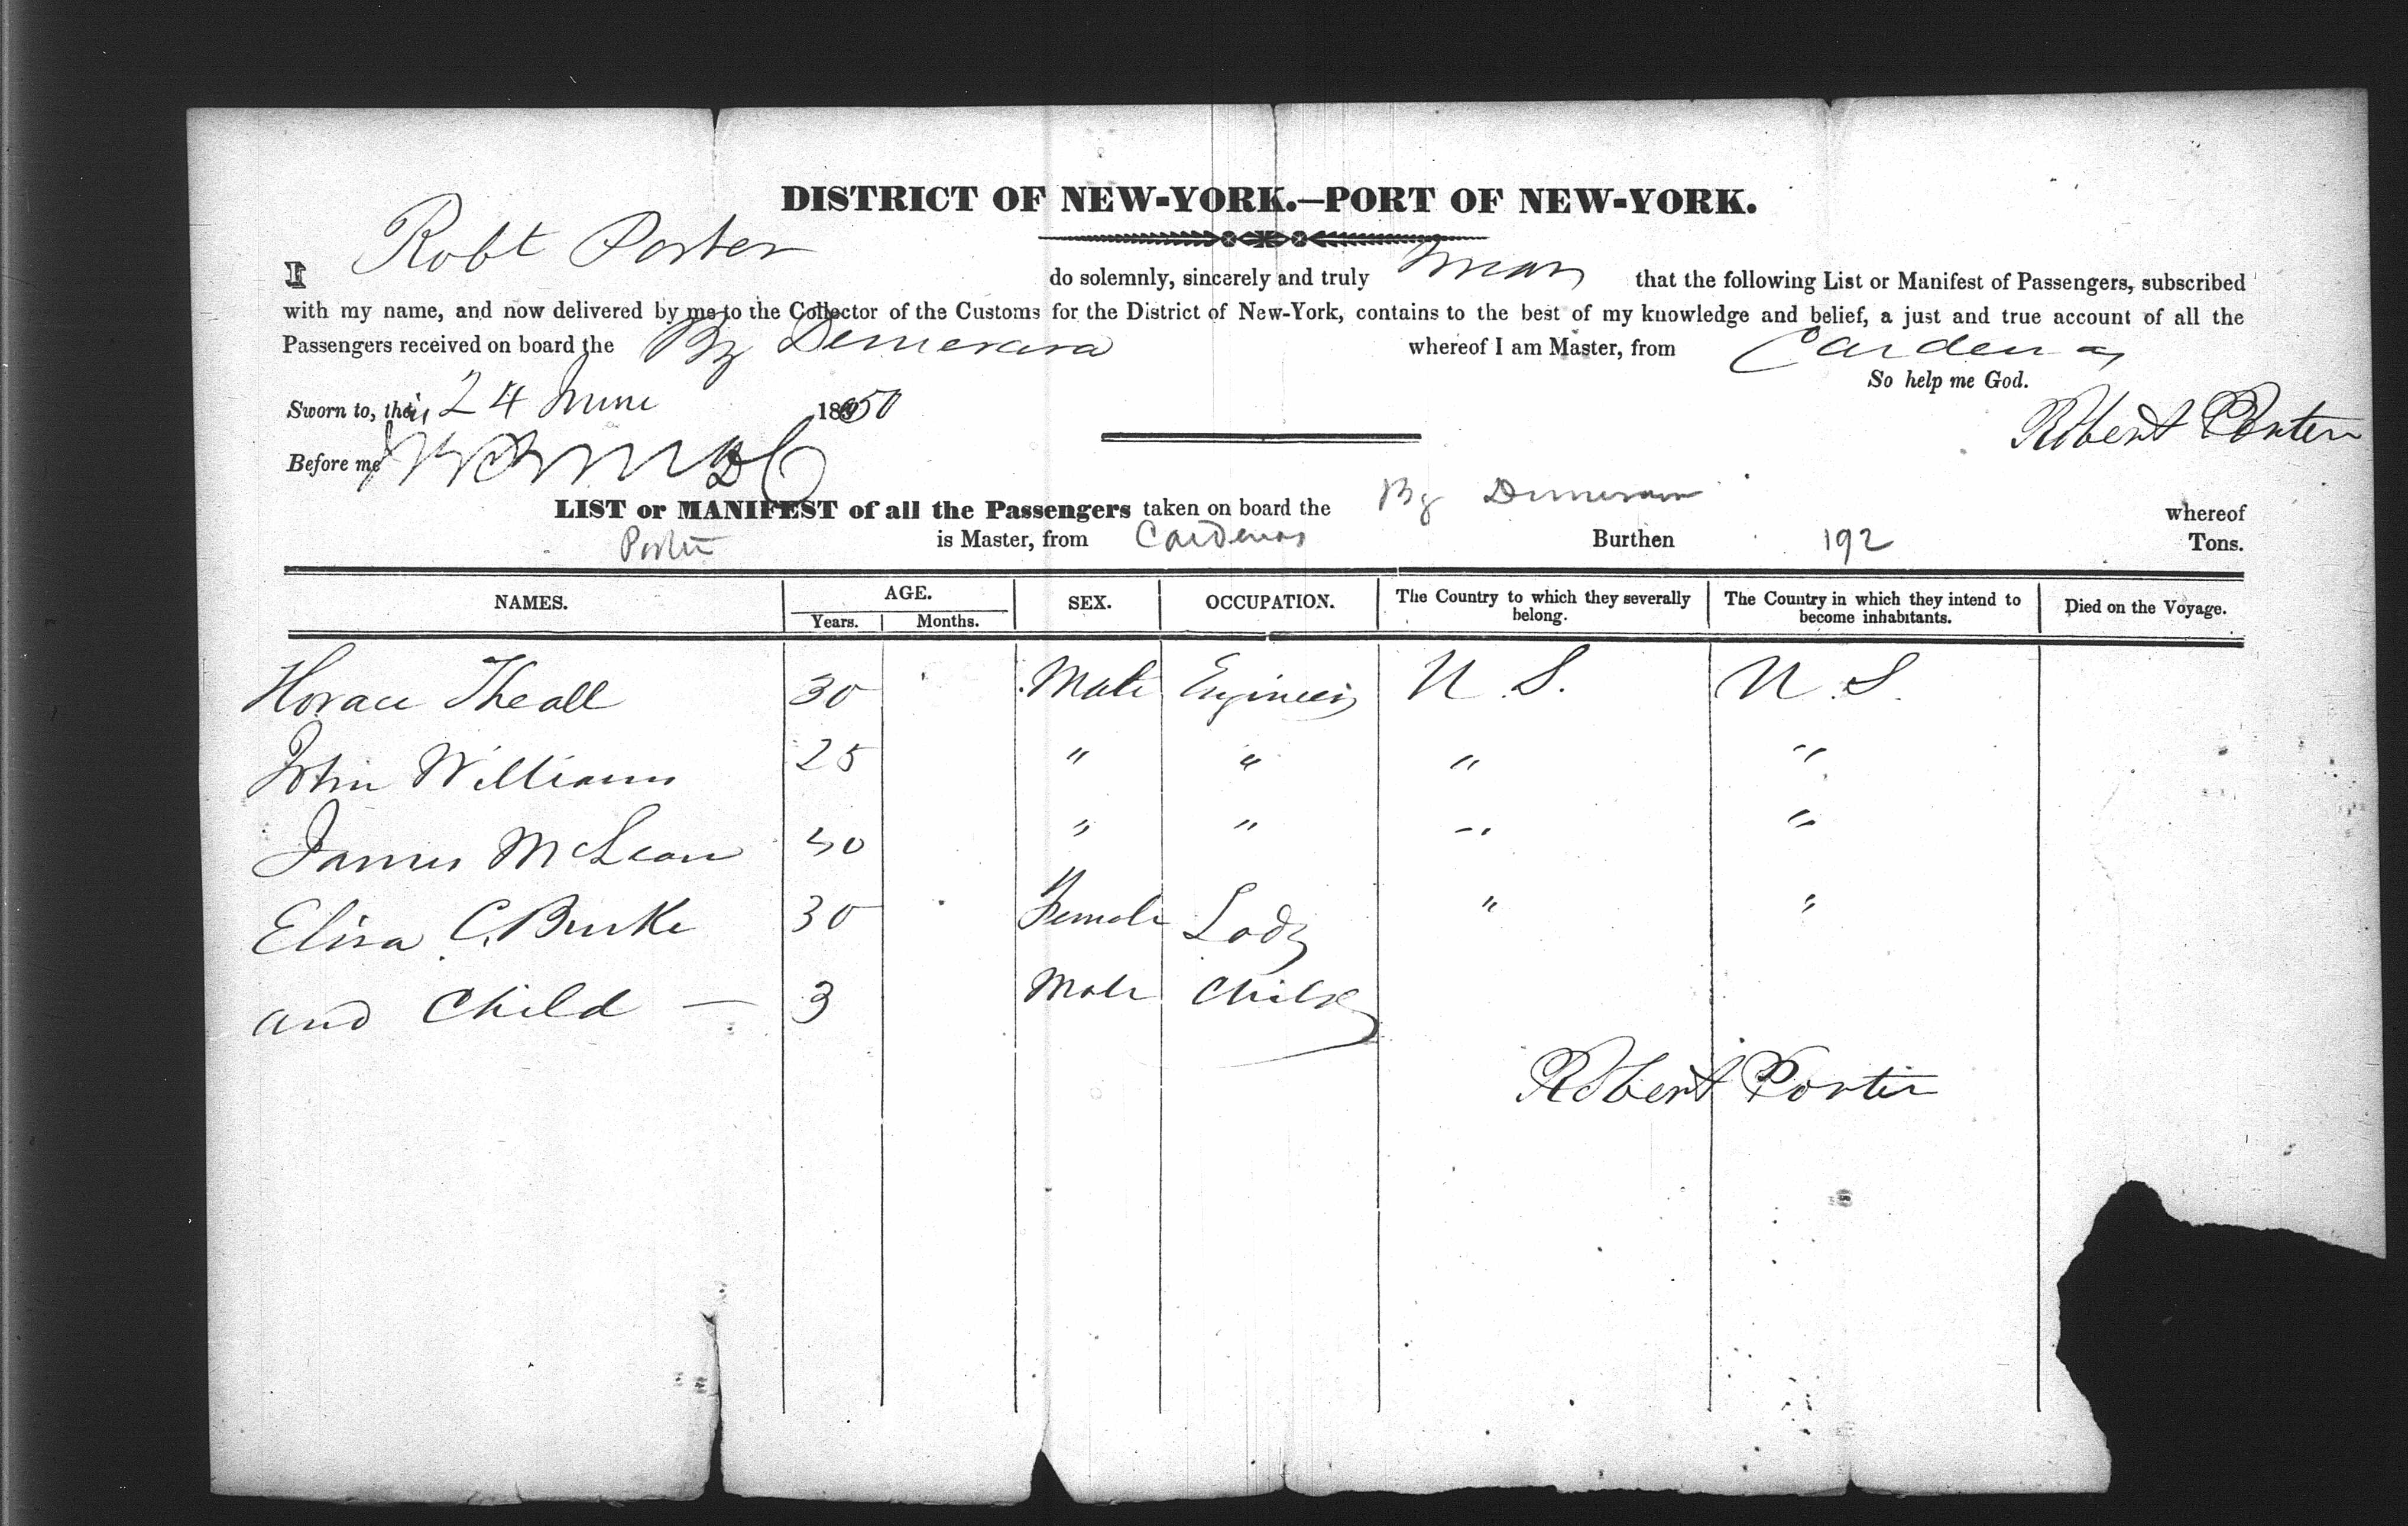 DISTRICT OF NEW-YORK.—PORT OF NEW-YORK.
I Robt Porter do solemnly, sincerely and truly swear that the following List or Manifest of Passengers, subscribed
with my name, and now delivered by me to the Collector of the Customs for the District of New-York, contains to the best of my knowledge and belief, a just and true account of all the
Passengers received on board the Bg Demerara whereof I am Master, from Cardenas
So help me God.
Sworn to, this 24 June 1850 Robert Porter
Before me
LIST or MANIFEST of all the Passengers taken on board the Bg Demerara whereof
Porter is Master, from Cardenas Burthen 192 Tons.
NAMES. AGE. SEX. OCCUPATION. The Country to which they severally belong. The Country in which they intend to become inhabitants. Died on the Voyage.
Years. Months.
Horace Theall 30 Male Engineer U.S. U.S.
John Williams 25 " " " "
James McLean 40 " " " "
Eliza C. Burke 30 Female Lady " "
and Child — 3 Male Child
Robert Porter